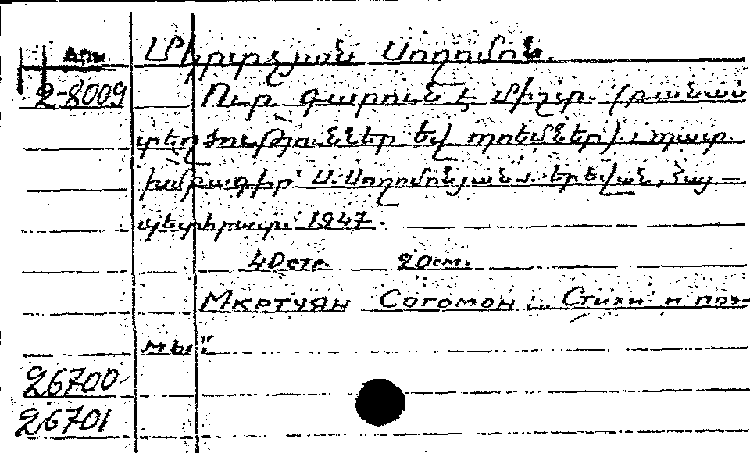 Մկրտչյան Սողոմոն.
2-8009 Ուր գարուն է միշտ. (բանաս
տեղծություններ եվ պոեմներ): պատ.
խմբագիր՝ Ս. Սողոմոնյան. Երեվան, Հայ—
պետհրատ. 1947.
40 стр. 20 см.
Мкртчян Согомон: Стихи и поэ-
мы:
26700
26701